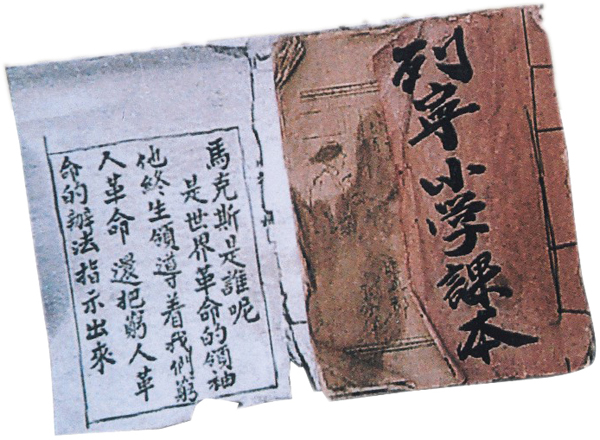 列寧小学課本
馬克斯是誰呢
是世界革命的領袖
他終生領導着我們窮
人革命還把窮人革
命的辦法指示出來